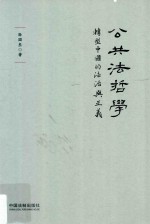 公共法哲學
轉型中國的法治與正義
中国法制出版社